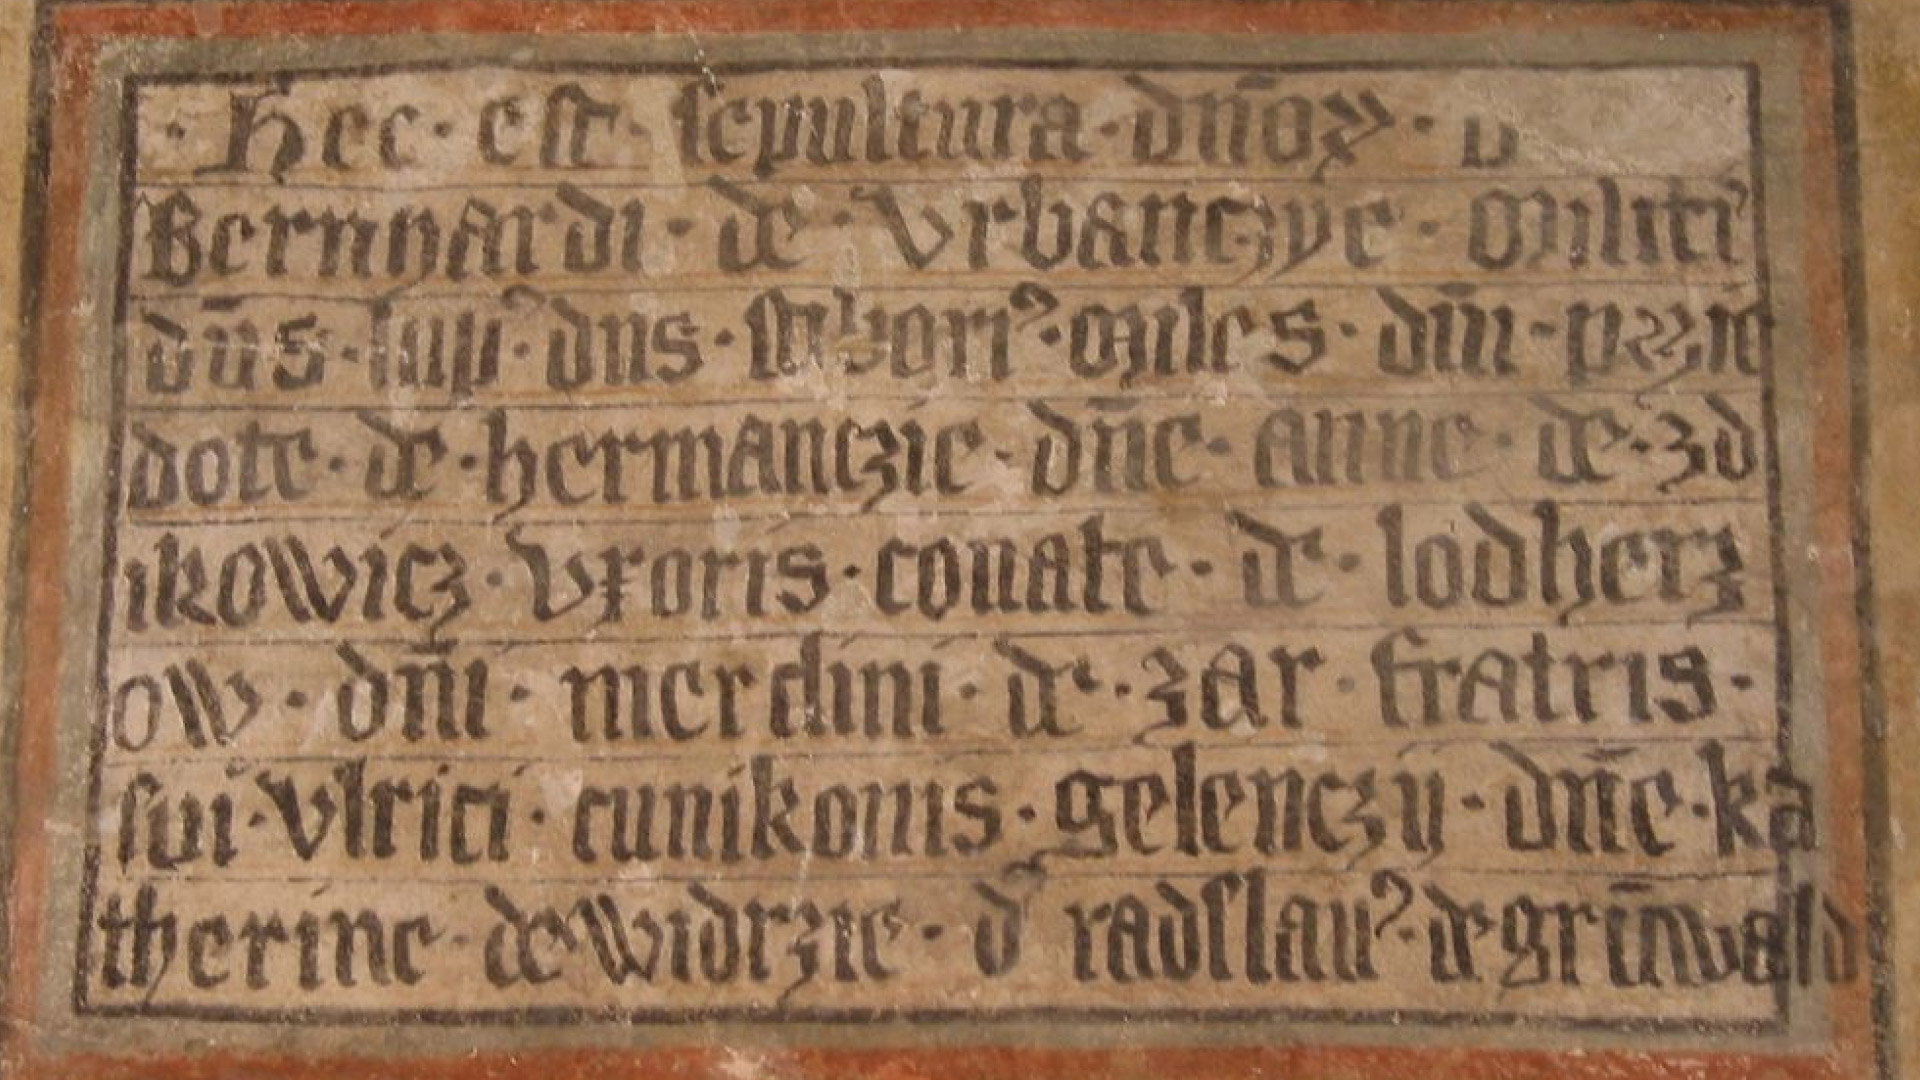 · Hec · est · sepultura · dn̄oꝝ ·
Bernhardi · de · Vrbanczye · Militi᾿
dn̄s · dn̄s · Miles · dn̄i ·
dote · de · hermanczie · dn̄e · anne · de · zd
ikowicz · Vxoris · couate · de · lodherz
ow · dn̄i · merclini · de · zar · fratris ·
sui · Vlrici · cunikonis · gelenczij · dn̄e · ka
therine · de Widrzie · d᾿ radslau᾿ · de grūwald